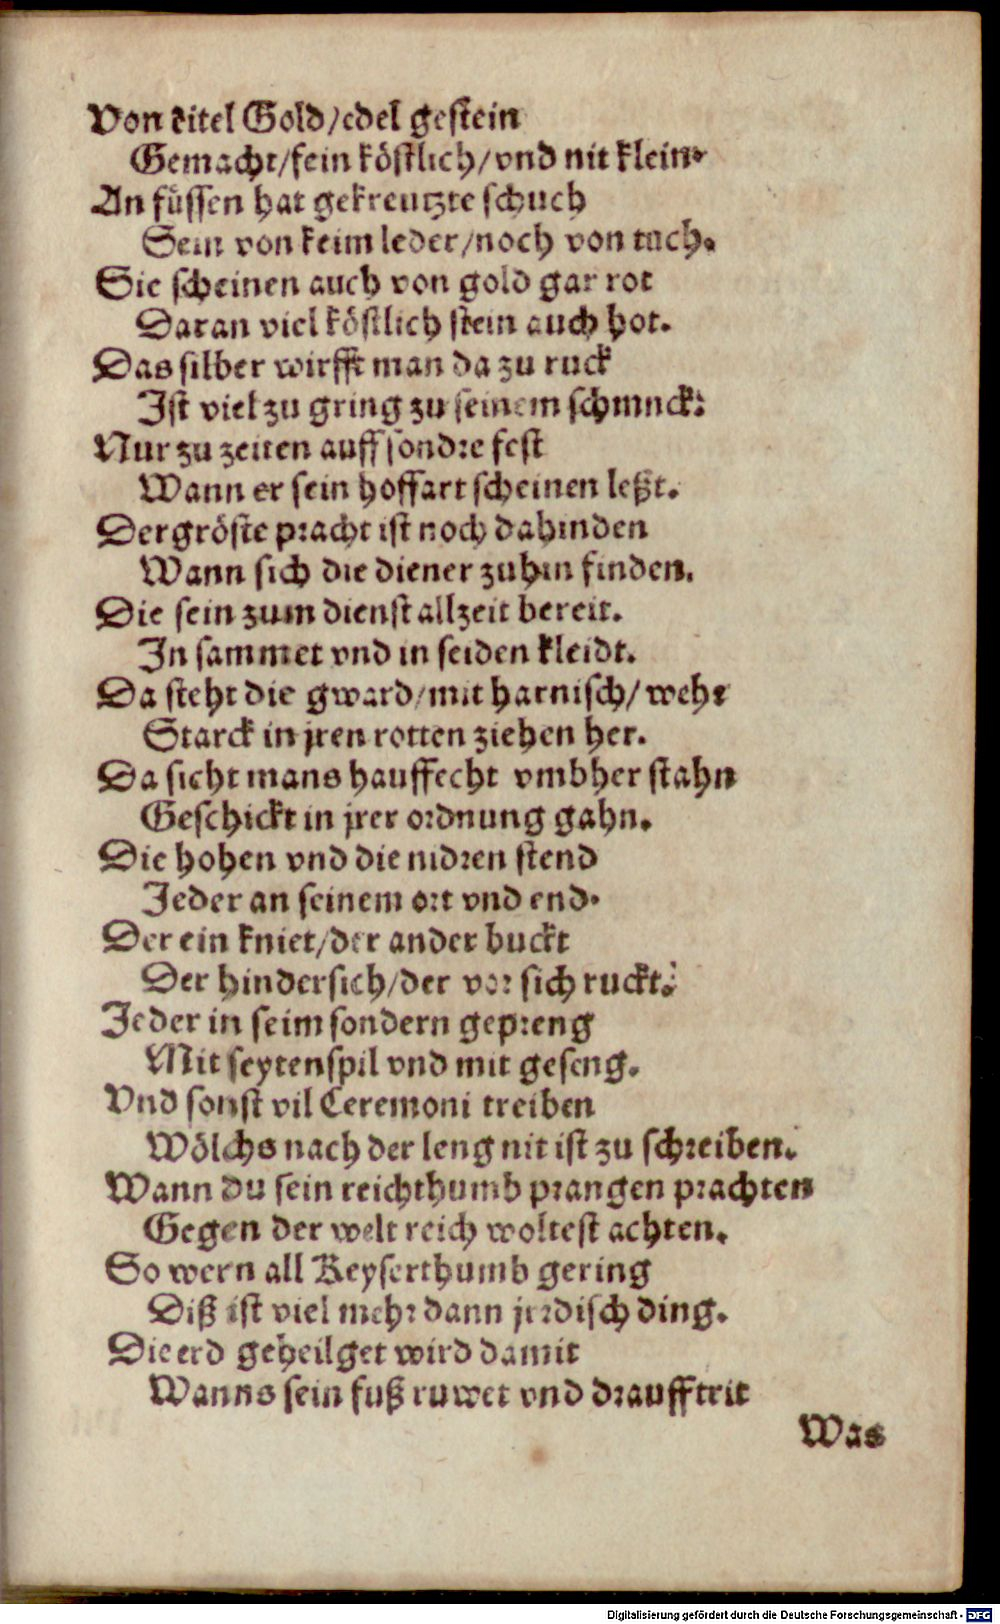 Von eitel Gold/edel gestein
Gemacht/fein köstlich/vnd nit klein.
An füssen hat gekreutzte schuch
Sein von keim leder/noch von tuch.
Sie scheinen auch von gold gar rot
Daran viel köstlich stein auch hot.
Das silber wirfft man da zu ruck
Ist viel zu gring zu seinem schmuck.
Nur zu zeiten auff sondre fest
Wann er sein hoffart scheinen leßt.
Der gröste pracht ist noch dahinden
Wann sich die diener zuhin finden.
Die sein zum dienst allzeit bereit.
In sammet vnd in seiden kleidt.
Da steht die gward/mit harnisch/wehr
Starck in jren rotten ziehen her.
Da sicht mans hauffecht vmbher stahn
Geschickt in jrer ordnung gahn.
Die hohen vnd die nidren stend
Jeder an seinem ort vnd end.
Der ein kniet/der ander buckt
Der hindersich/der vor sich ruckt.
Jeder in seim sondern gepreng
Mit seytenspil vnd mit geseng.
Vnd sonst vil Ceremoni treiben
Wölchs nach der leng nit ist zu schreiben.
Wann du sein reichthumb prangen prachten
Gegen der welt reich woltest achten.
So wern all Keyserthumb gering
Diß ist viel mehr dann jrrdisch ding.
Die erd geheilget wird damit
Wanns sein fuß ruwet vnd drauff trit
Was
Digitalisierung gefördert durch die Deutsche Forschungsgemeinschaft - DFG